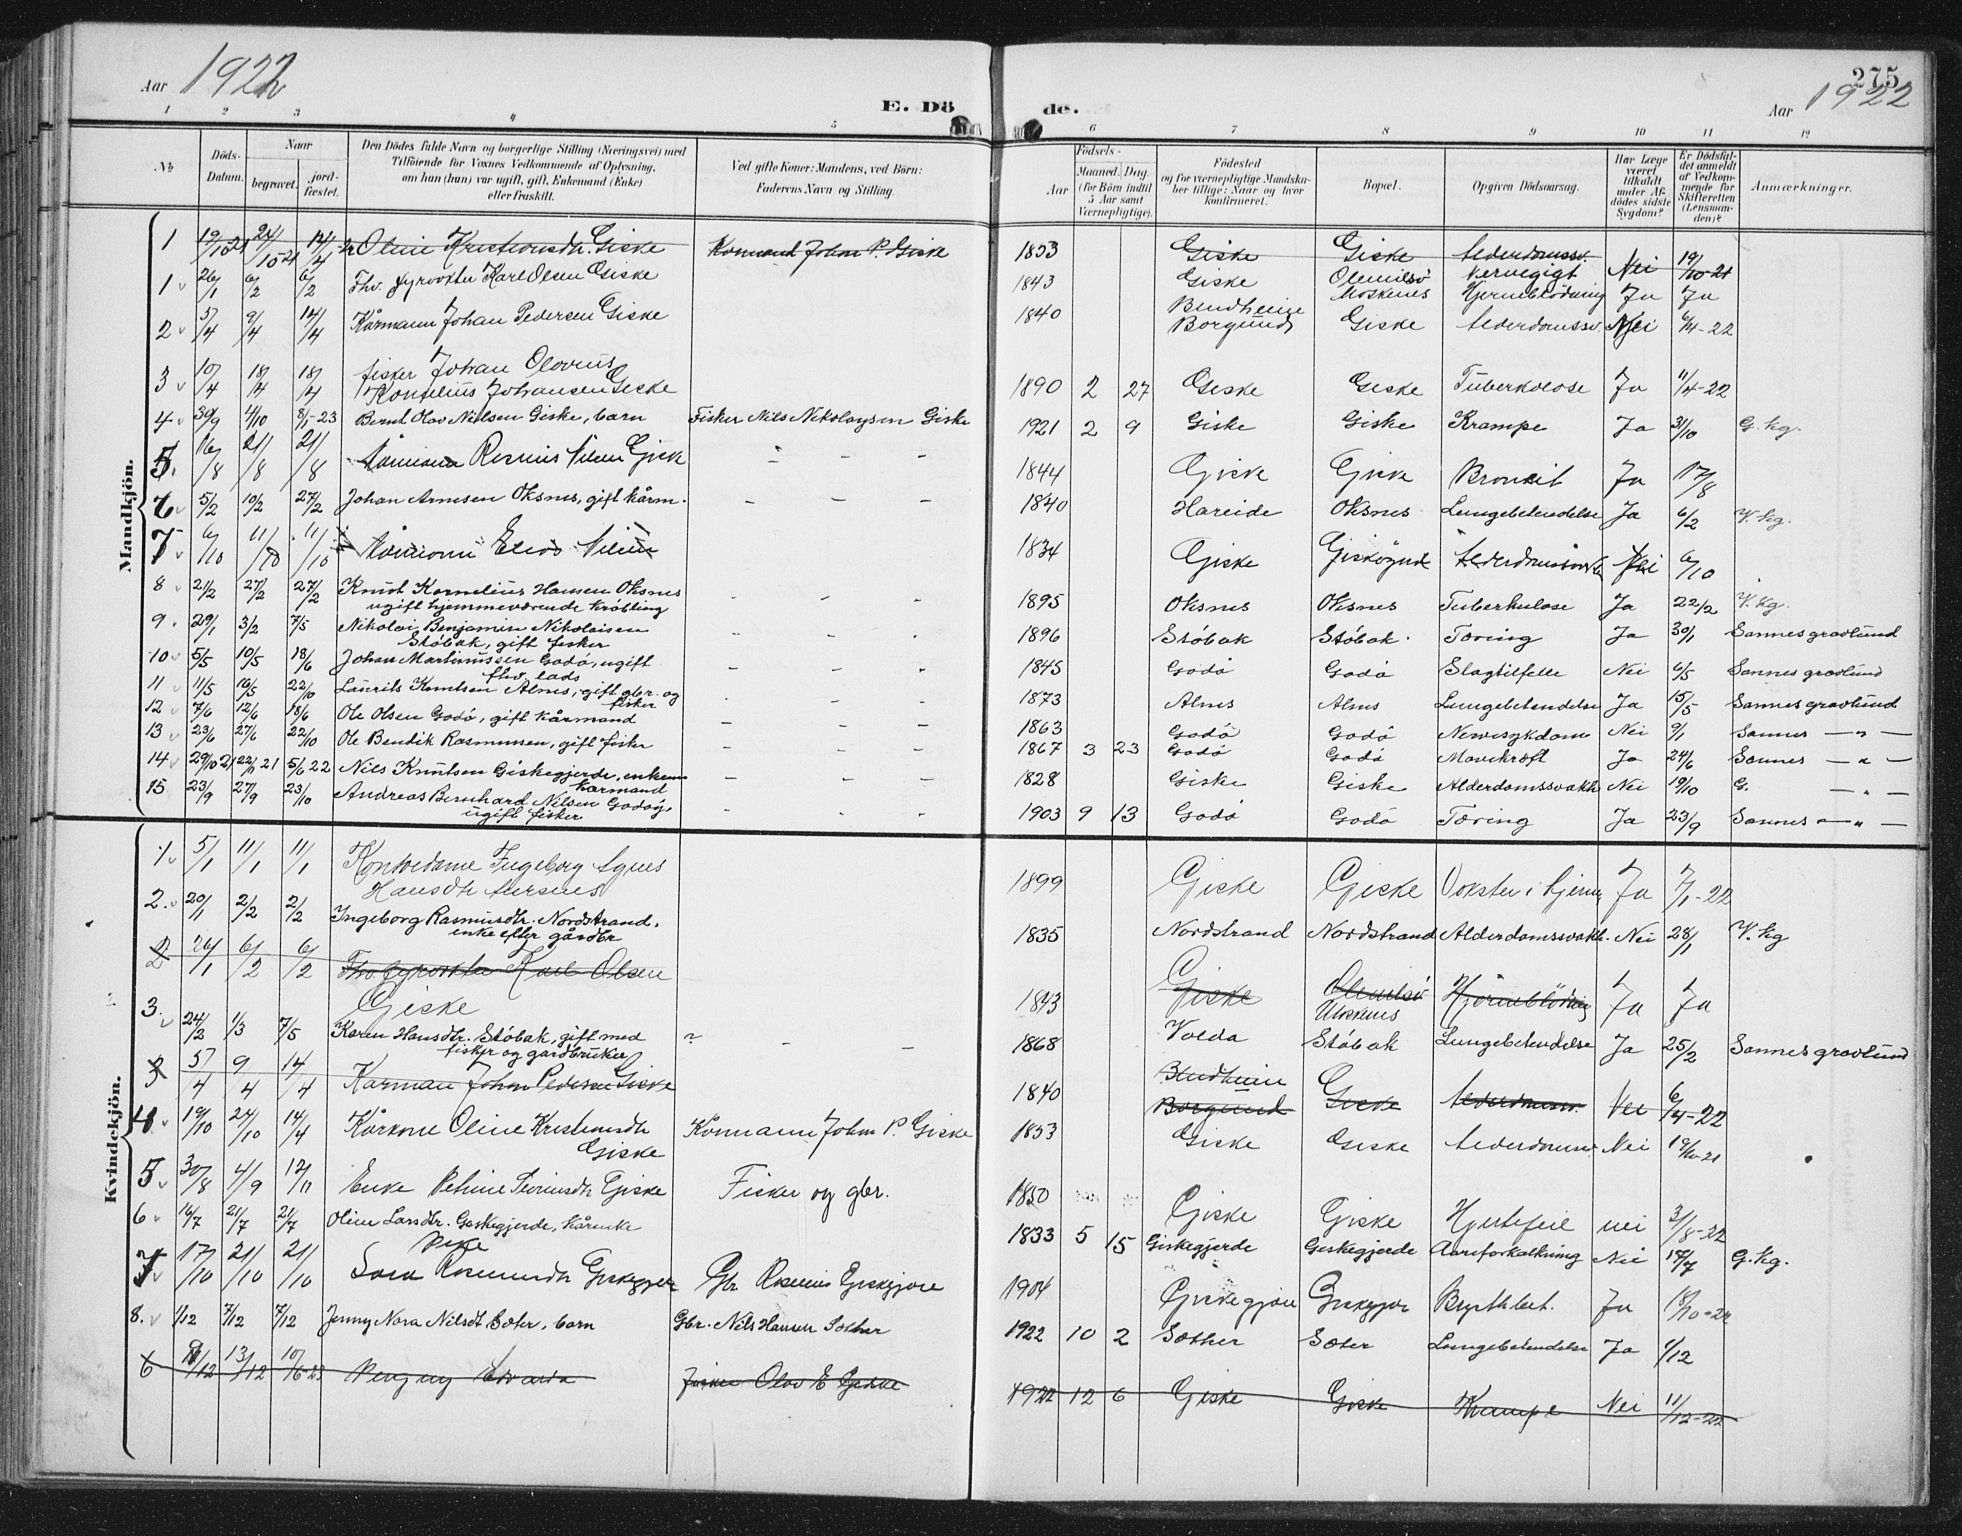 Aar 1922
E. Dö de.
Aar 1922
275
1 2 3 4 5 6 7 8 9 10 11 12
No
Döds-Datum.
Naar begravet. jordfæstet.
Den Dödes fulde Navn og borgerlige Stilling (Næringsvei) med Tilföiende for Voxnes Vedkommende af Oplysning, om han (hun) var ugift, gift, Enkemand (Enke) eller fraskilt.
Ved gifte Koner: Mandens, ved Börn: Faderens Navn og Stilling.
Födsels-
Aar
Maaned. Dag (for Börn indtil 5 Aar samt Værnepligtige).
Födested og for værnepligtige Mandskaber tillige: Naar og hvor konfirmeret.
Bopæl.
Opgiven Dödsaarsag.
Har Læge været tilkaldt under Afdödes sidste Sygdom?
Er Dödsfaldet anmeldt af Vedkommende for Skifteretten (Lensmanden)?
Anmærkninger.
Mandkjön.
1 19/10 21 24/10 21 14/4 Oline Kristiansdtr. Giske Kårmand Johan P. Giske 1853 Giske Giske Alderdomssv. Nei 19/10-21
1 26/1 6/2 6/2 Fhv. fyrvokter Karl Olsen Giske 1843 Giske Moskenes Hjerneblödning Ja Ja
2 5/4 9/4 14/4 Kårmann Johan Pedersen Giske 1840 Blindheim Borgund Giske Alderdomssv. Nei 6/4-22
3 10/4 18/4 18/4 fisker Johan Olovius Kornelius Johansen Giske 1890 2 27 Giske Giske Tuberkolose Ja 11/4-22
4 30/9 4/10 8/1-23 Bernt Olav Nielsen Giske, barn Fisker Nils Nikolaysen Giske 1921 2 9 Giske Giske Krampe Ja 3/10 G. kg.
5. 16/8 21/8 21/8 Kårmann Rasmus Nilsen Giske - - - 1844 Giske Giske Bronkit Ja 17/8
6 5/2 10/2 27/2 Johan Arnesen Oksnes, gift kårm. - - - 1840 Hareide Oksnes Lungebetendelse Ja 6/2 V. kg.
7 6/10 11/10 11/10 Kårmann Elias Nilsen 1834 Giske Alderdomssvakh Nei 6/10
8 21/2 27/2 27/2 Knut Kornelius Hansen Oksnes ugift hjemmeværende krøbling - - - 1895 Oksnes Oksnes Tuberkulose Ja 22/2 V. kg.
9. 29/1 3/2 7/5 Nikolai Benjamin Nikolaisen Støbak, gift fisker - - - 1896 Støbak Støbak. Tæring Ja 30/1 Sannes gravlund
10 5/5 10/5 18/6 Johan Martinussen Godø, ugift fhv. lads - - - 1845 Godø Godø Slagtilfelle Nei 6/5 Sannes gravlund
11 11/5 16/5 22/10 Laurits Knutsen Alnes, gift gbr. og fisker - - - 1873 Alnes Alnes Lungebetendelse Ja 15/5 Sannes gravlund
12 7/6 12/6 18/6 Ole Olsen Godø, gift kårmand - - - 1863 Godø Godø Nervesykdom Nei 9/1 Sannes — " —
13 23/6 27/6 22/10 Ole Bendik Rasmussen, gift fisker - - - 1867 3 23 Godø Godø Mavekræft Ja 24/6 Sannes — " —
14 29/10 21 22/11 21 5/6 22 Nils Knutsen Giskegjerde, enkem kårmand - - - 1828 Giske Giske Alderdomssvakh Nei 19/10 G. — " —
15 23/9 27/9 23/10 Andreas Bernhard Nilsen Godøy, ugift fisker - - - 1903 9 13 Godø Godø Tæring Ja 23/9 Sannes — " —
Kvindekjön.
1 5/1 11/1 11/1 Kontordame Ingeborg Agnes Hansdtr 1899 Giske Giske Vokster i hjerne Ja 7/1-22
2. 20/1 2/2 2/2 Ingeborg Rasmusdtr. Nordstrand, enke efter gårdbr 1835 Nordstrand Nordstrand Alderdomssvakh. Nei 28/1 V. kg
2 26/1 6/2 6/2 Fhv. fyrvokter Karl Olsen Giske 1843 Giske Hjerneblödning Ja Ja
3. 24/2 1/3 7/5 Karen Hansdtr. Støbak, gift med fisker og gardbruker - - - 1868 Volda Støbak Lungebetendelse Ja 25/2 Sannes gravlund
3 5/4 9/4 14/4 Kårman Johan Pedersen Giske 1840 Blindheim Borgund Giske Alderdomssv. Nei 6/4-22
4 19/10 24/10 14/4 Kårkone Oline Kristiansdtr Giske Kårmann Johan P. Giske 1853 Giske Giske Alderdomssv Nei 19/10-21
5 30/8 4/9 12/11 Enke Petrine Giske Fisker og gbr. 1850 Giske Giske Hjertefeil nei 3/8-22
6 16/7 21/7 21/7 Oline Larsdtr. Giskegjerde, kårenke 1833 5 15 Giskegjerde Giskegjerde Aareforkalkning Nei 17/7 G. kg.
7 17/10 21/10 21/10 Pike Sara Rasmusdtr Giskegjer Gbr Rasmus Giskegjøre 1904 Giskegjøre Giskegjør Brystbet. Ja 18/10-22
8. 1/12 7/12 7/12 Jenny Nora Nilsdt Sæter, barn Gbr. Nils Hansen Sæther 1922 10 2 Sæther Sæter Lungebetendelse Ja 4/12
6 9/12 13/12 10/6-23 Pengny Edvarda fisker Olav E Giske 1922 12 6 Giske Giske Krampe Nei 11/12-22